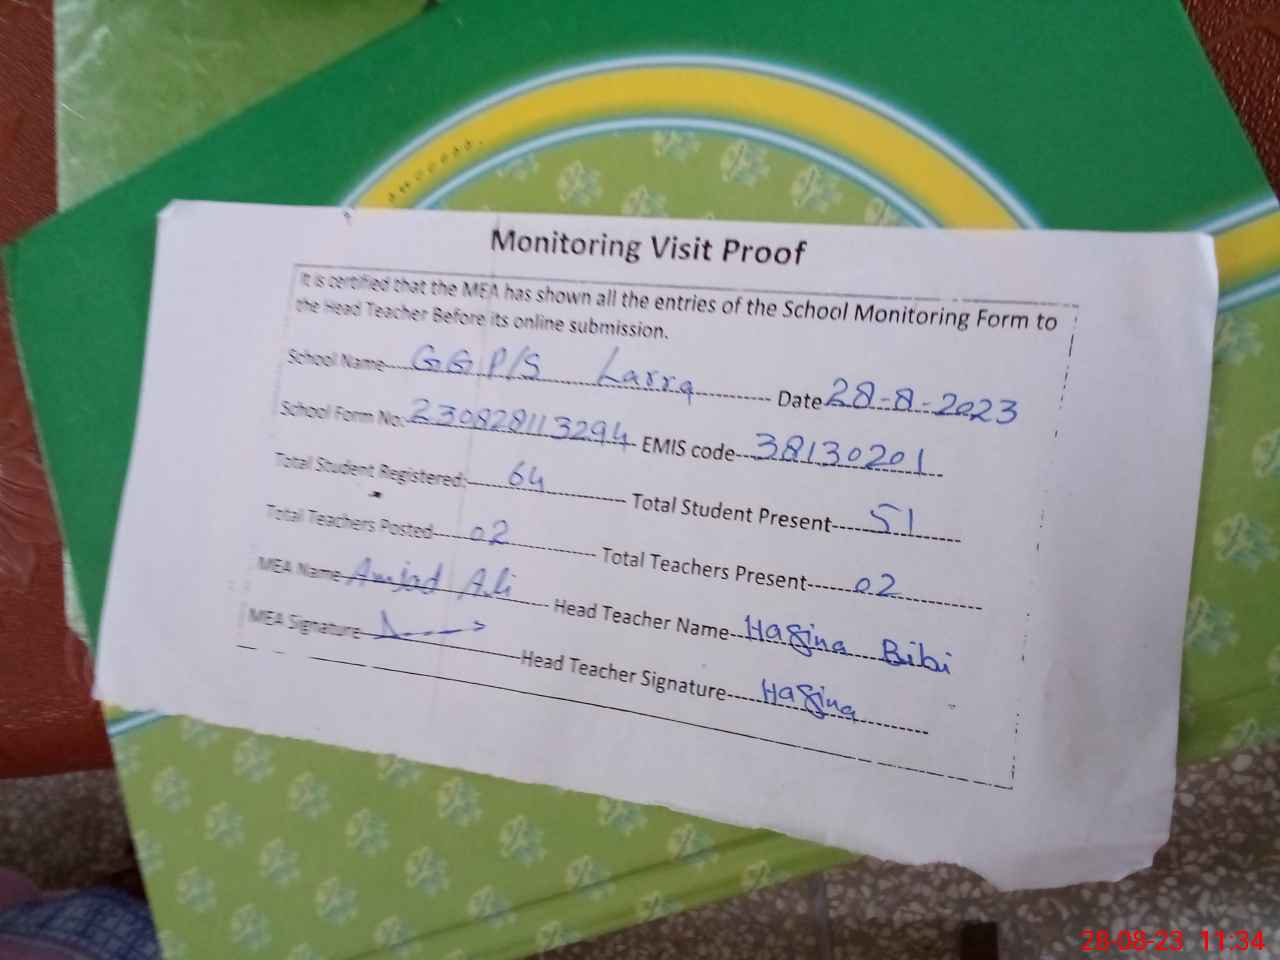 Monitoring Visit Proof
It is certified that the MEA has shown all the entries of the School Monitoring Form to
the Head Teacher Before its online submission.
School Name GGP/S Larra Date 28-8-2023
School Form No: 230828113294 EMIS code 38130201
Total Student Registered: 64 Total Student Present 51
Total Teachers Posted 02 Total Teachers Present 02
MEA Name Amjad Ali Head Teacher Name Hasina Bibi
MEA Signature Head Teacher Signature Hasina
28-08-23 11:34